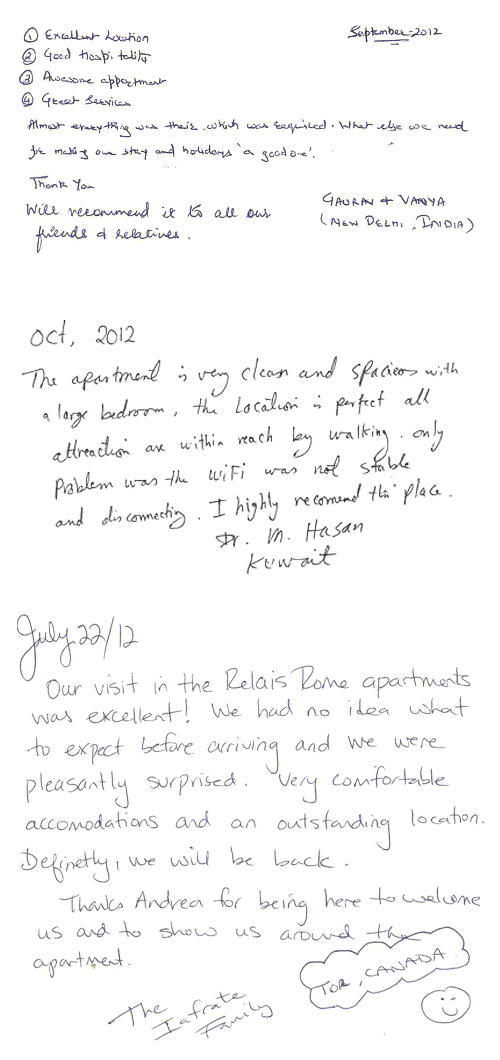 September-2012
① Excellent Location
② Good Hospitality
③ Awesome appartment
④ Great Services
Almost everything was their which was required. What else we need
for making our stay and holidays 'a good one'.
Thank You
Will recommend it to all our
friends & relatives.
GAURAV & VANYA
(NEW DELHI, INDIA)
Oct, 2012
The apartment is very clean and spacieos with
a large bedroom, the Location is perfect all
attreaction are within reach by walking. only
Problem was the WiFi was not stable
and disconnecting. I highly recomend this place.
Dr. M. Hasan
Kuwait
July 22/12
Our visit in the Relais Rome apartments
was excellent! We had no idea what
to expect before arriving and we were
pleasantly surprised. Very comfortable
accomodations and an outstanding location.
Definetly, we will be back.
Thanks Andrea for being here to welcome
us and to show us around the
apartment.
TOR, CANADA
The
Iafrate
Family